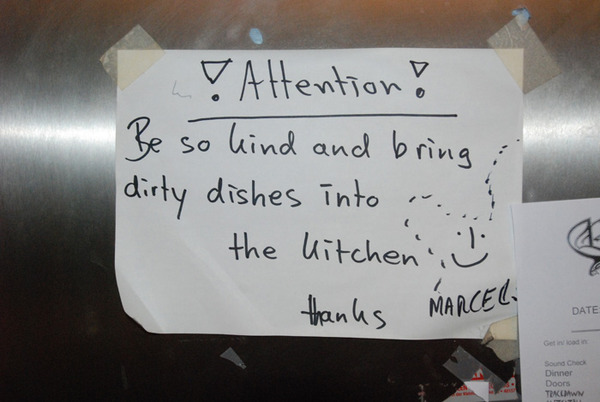 ! Attention !
Be so kind and bring
dirty dishes into
the kitchen
thanks
MARCEL
DATE
Get in/ load in:
Sound Check
Dinner
Doors